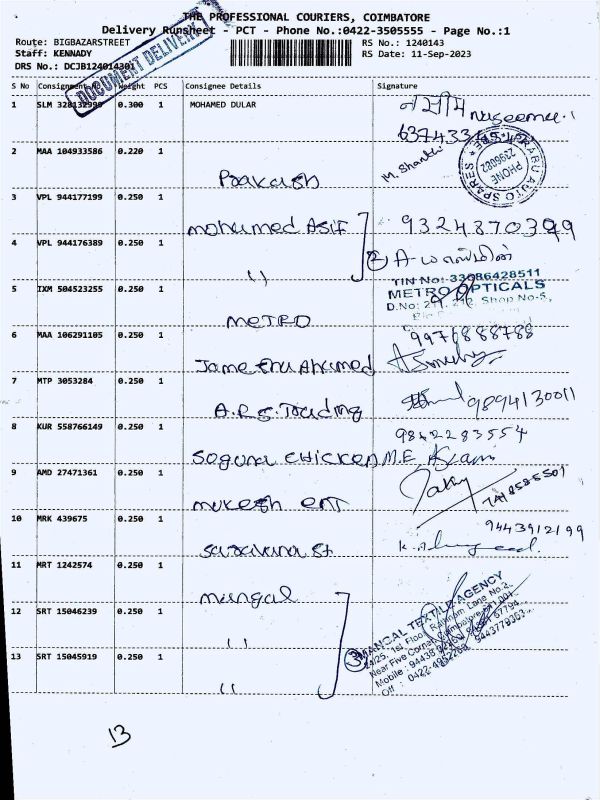 THE PROFESSIONAL COURIERS, COIMBATORE
Delivery Runsheet - PCT - Phone No.:0422-3505555 - Page No.:1
Route: BIGBAZARSTREET RS No.: 1240143
Staff: KENNADY RS Date: 11-Sep-2023
DRS No.: DCJB124014301
DOCUMENT DELIVERY
S No Consignment No Weight PCS Consignee Details Signature
1 SLM 328132999 0.300 1 MOHAMED DULAR
2 MAA 104933586 0.220 1 Prakash M. Shanthi
PRABU AUTO SPARES
PHONE 2396082
3 VPL 944177199 0.250 1 Mohamed ASIF 9324870399
4 VPL 944176389 0.250 1 "
5 IXM 504523255 0.250 1 METRO
TIN No: 33686428511
METRO OPTICALS
D.No: Shop No-5,
6 MAA 106291105 0.250 1 9976888788
7 MTP 3053284 0.250 1 A.R.S. Trading 9894130011
8 KUR 558766149 0.250 1 Suguna CHICKEN 9842283554
9 AMD 27471361 0.250 1 mukesh ENT
10 MRK 439675 0.250 1 Saravana St 9443912199
11 MRT 1242574 0.250 1 mangal
12 SRT 15046239 0.250 1 "
13 SRT 15045919 0.250 1 "
3 MANGAL TEXTILE AGENCY
24/25, 1st Floor, Rathinam Lane No.2,
Near Five Corner, Coimbatore
Mobile : 94438
Off : 0422-
13